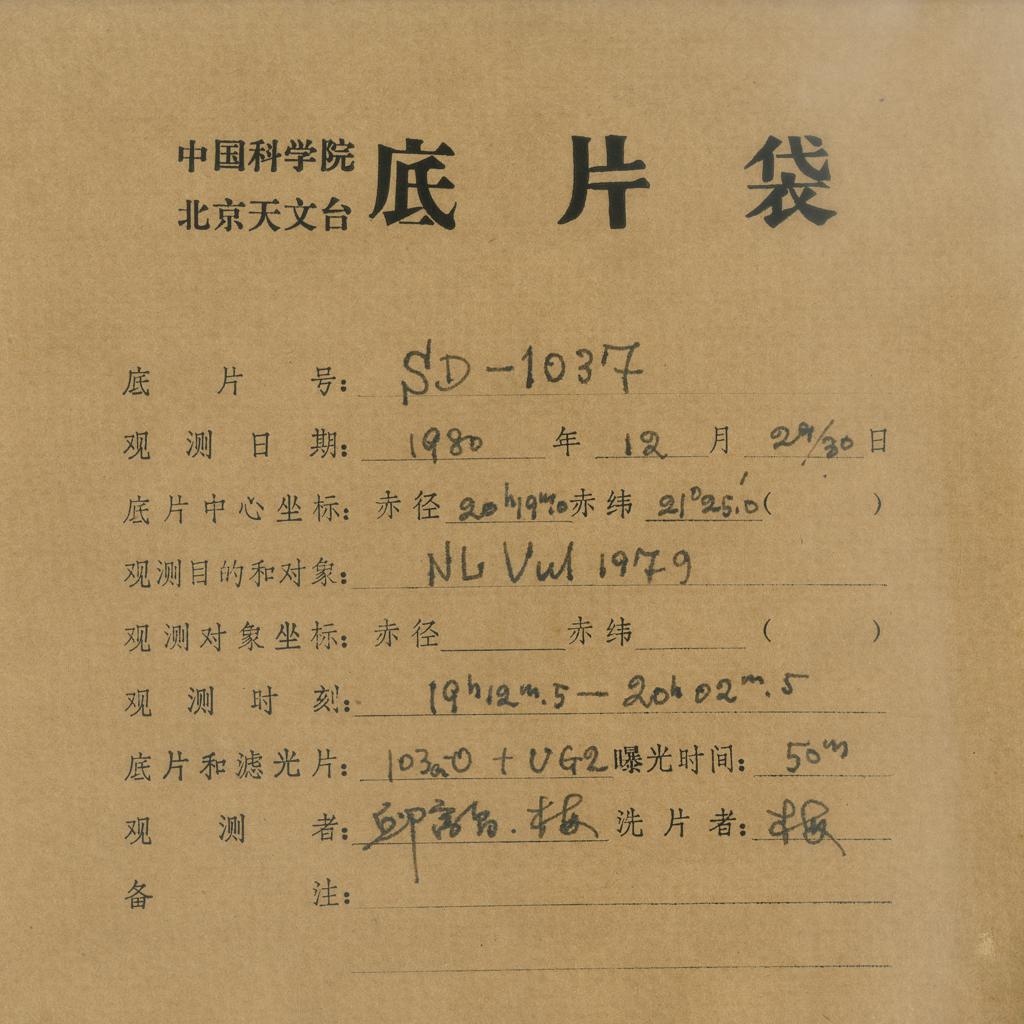 中国科学院
北京天文台
底片袋
底片号: SD-1037
观测日期: 1980 年 12 月 29/30 日
底片中心坐标: 赤径 20h19m.0 赤纬 21°25'.0 ( )
观测目的和对象: NL Vul 1979
观测对象坐标: 赤径 赤纬 ( )
观测时刻: 19h12m.5 — 20h02m.5
底片和滤光片: 103a-O + UG2 曝光时间: 50m
观测者: 邱 . 梅 洗片者: 梅
备注: